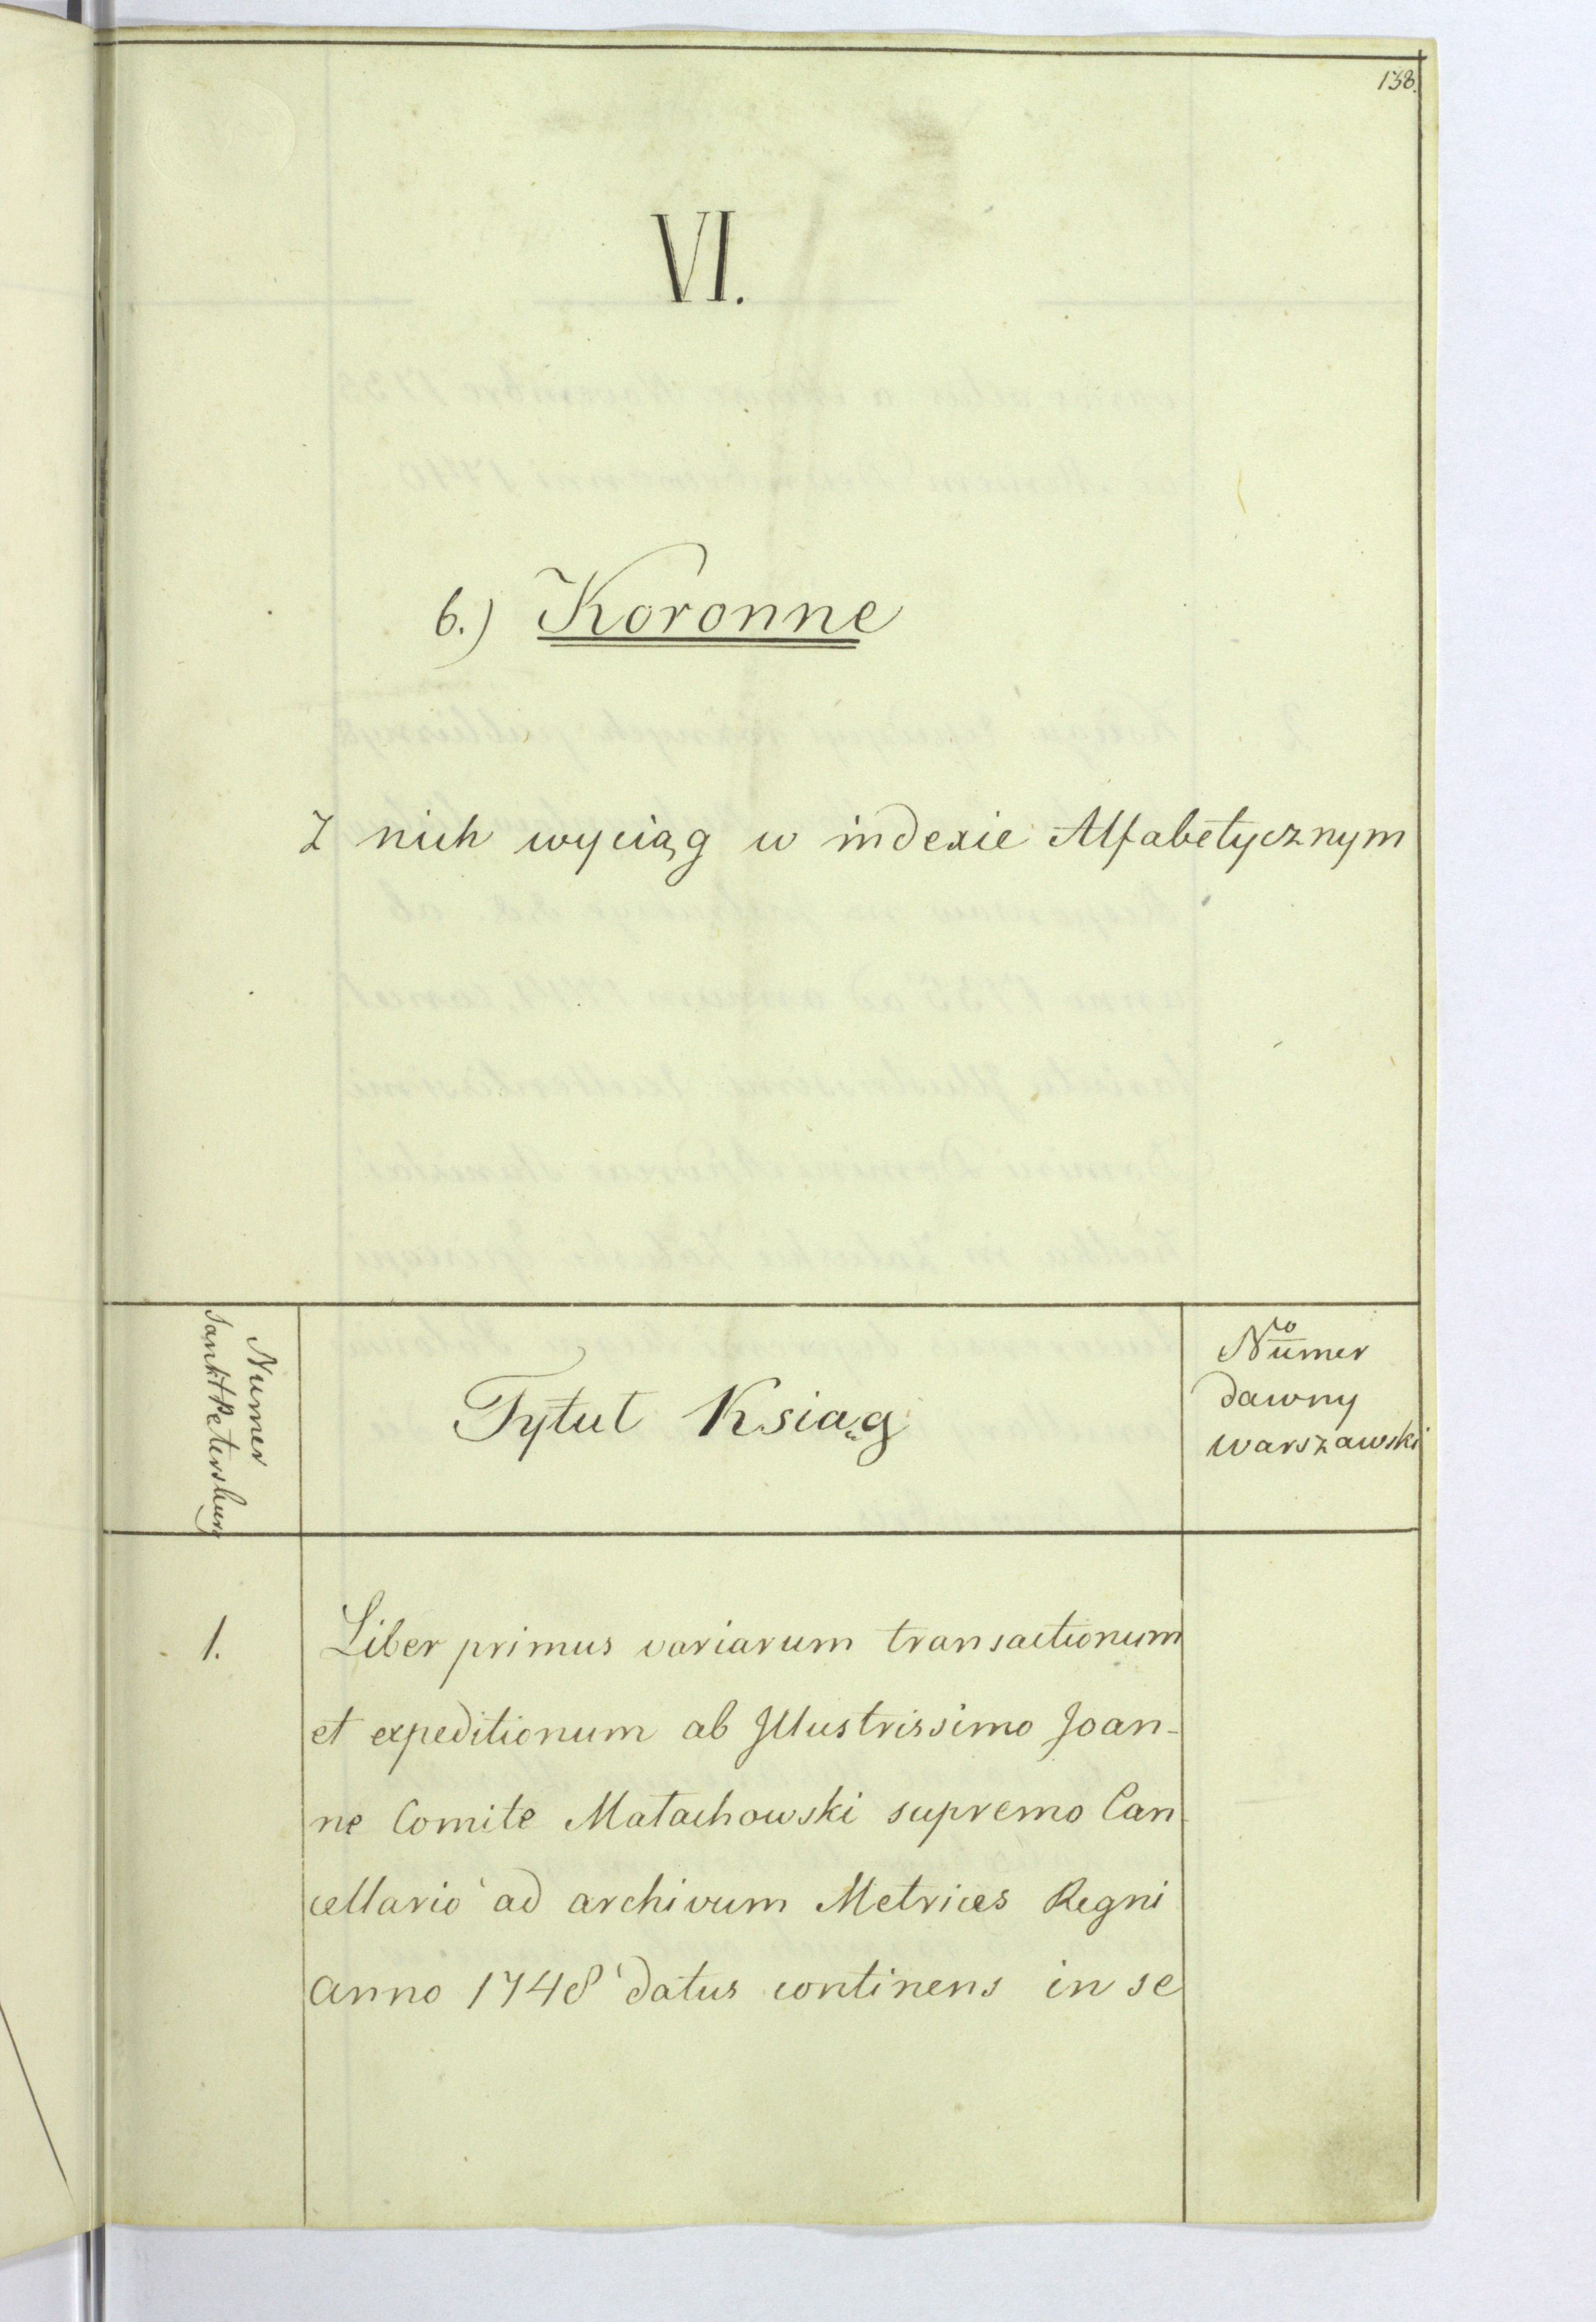 138.
VI.
6.) Koronne
Z nich wyciąg w indexie Alfabetycznym
Numer
Sankt Petersburg
Tytuł Ksiąg
Numer
dawny
warszawski
1.
Liber primus variarum transactionum
et expeditionum ab Jllustrissimo Joan-
ne Comite Małachowski supremo Can
cellario ad archivum Metrices Regni
anno 1748 datus continens in se